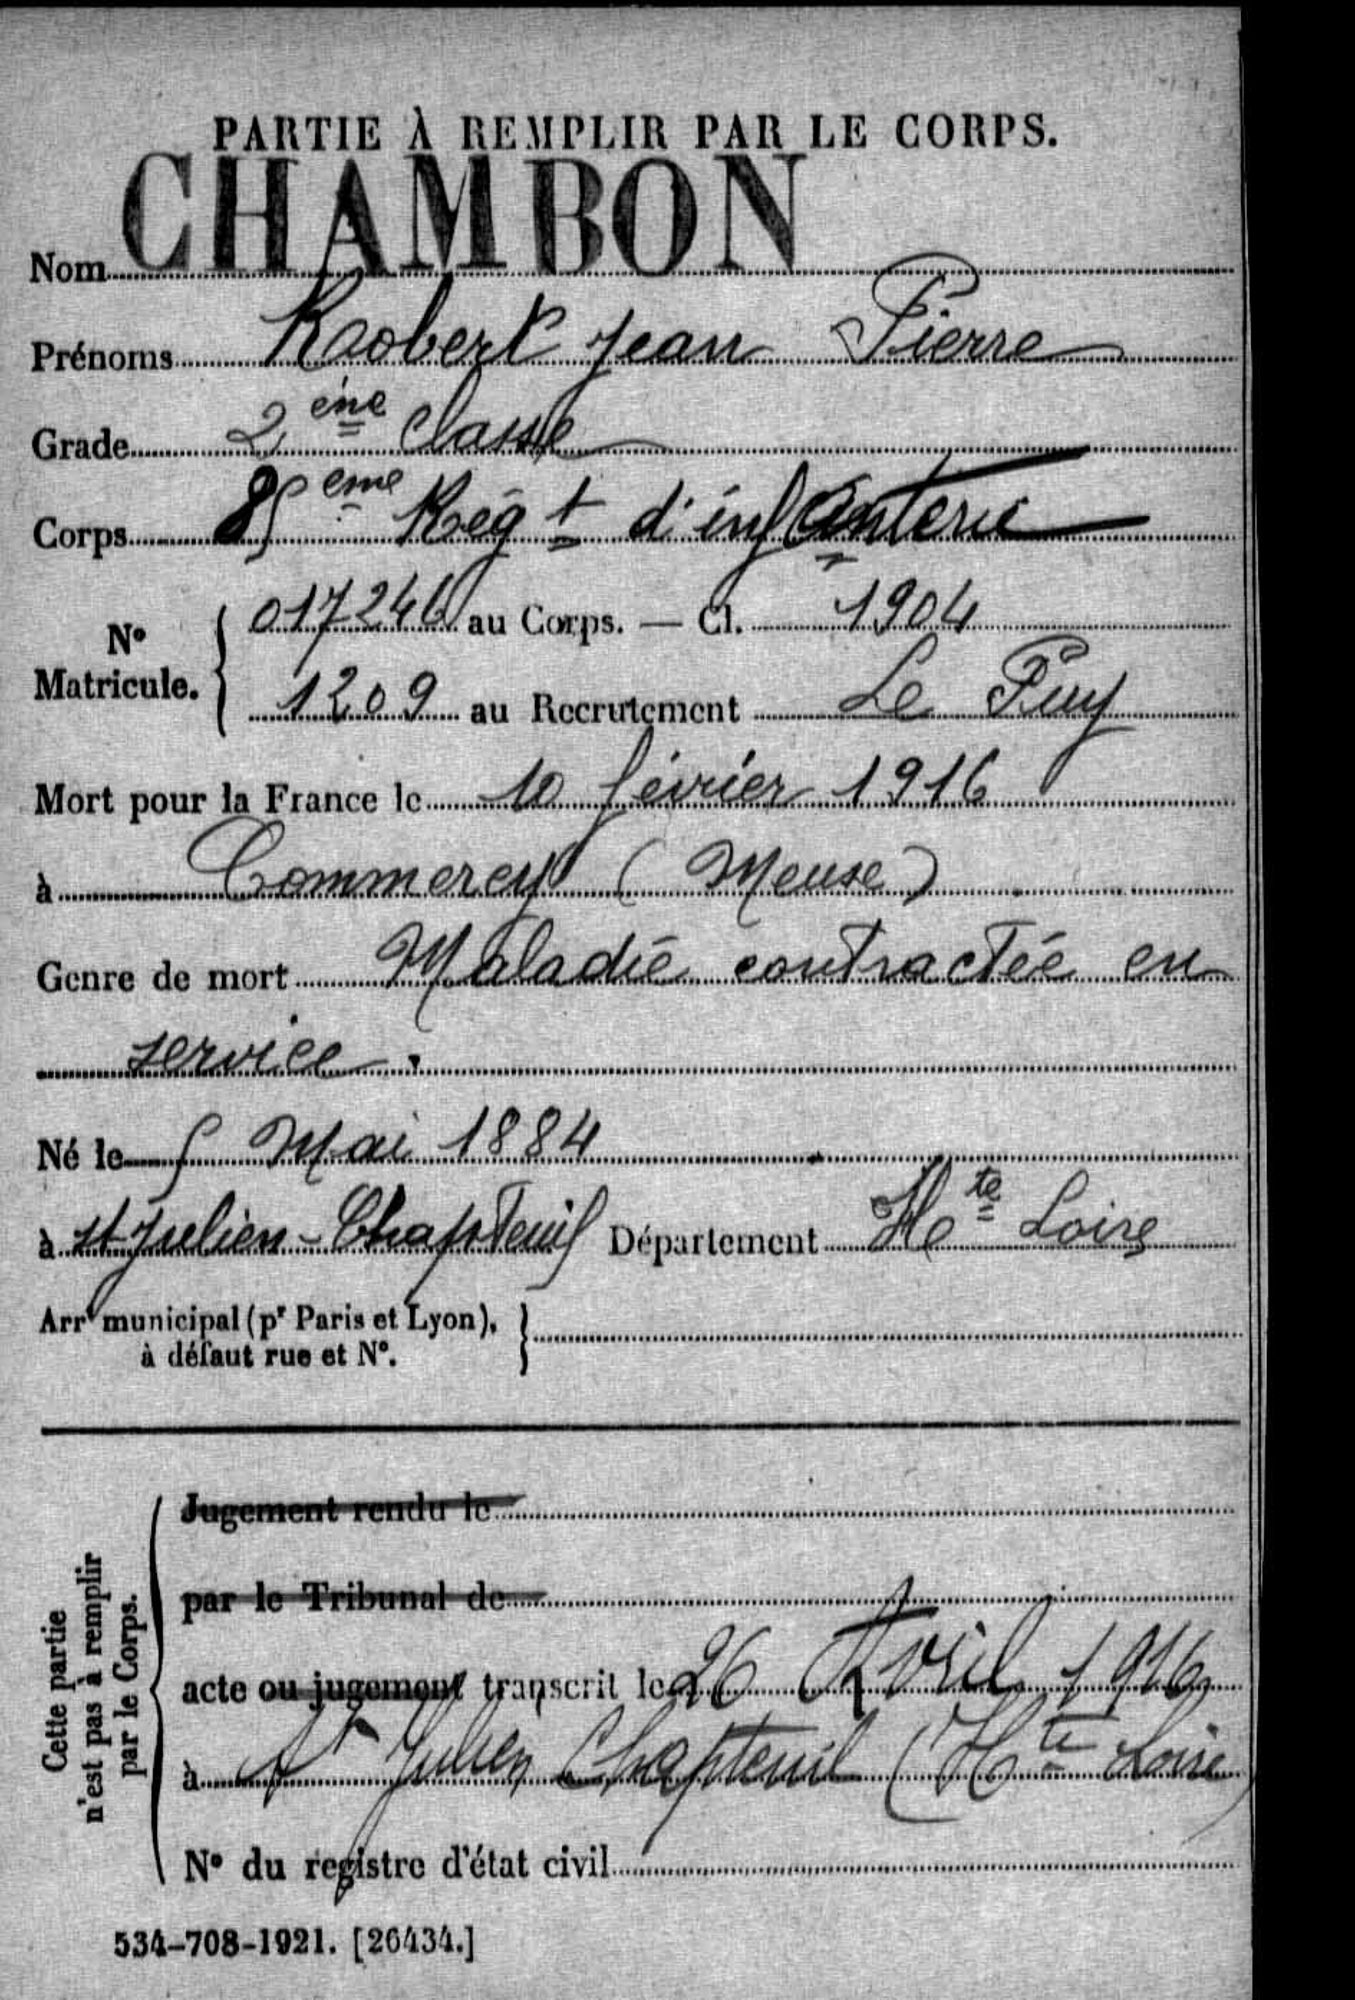 PARTIE À REMPLIR PAR LE CORPS.
Nom CHAMBON
Prénoms Robert Jean Pierre
Grade 2 ème classe
Corps 85 eme Rég t d'infanterie
N° Matricule. 017246 au Corps. — Cl. 1904
1209 au Recrutement Le Puy
Mort pour la France le 10 février 1916
à Commercy (Meuse)
Genre de mort Maladie contractée en
service.
Né le 5 Mai 1884
à St Julien-Chapteuil Département Hte Loire
Arrt municipal (pr Paris et Lyon),
à défaut rue et N°.
Cette partie
n'est pas à remplir
par le Corps.
Jugement rendu le
par le Tribunal de
acte ou jugement transcrit le 26 Avril 1916
à St Julien Chapteuil (Hte Loire)
N° du registre d'état civil
534-708-1921. [26434.]